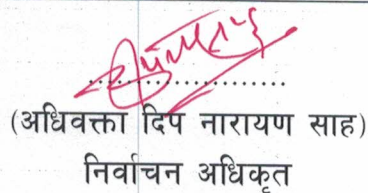 (अधिवक्ता दिप नारायण साह)
निर्वाचन अधिकृत